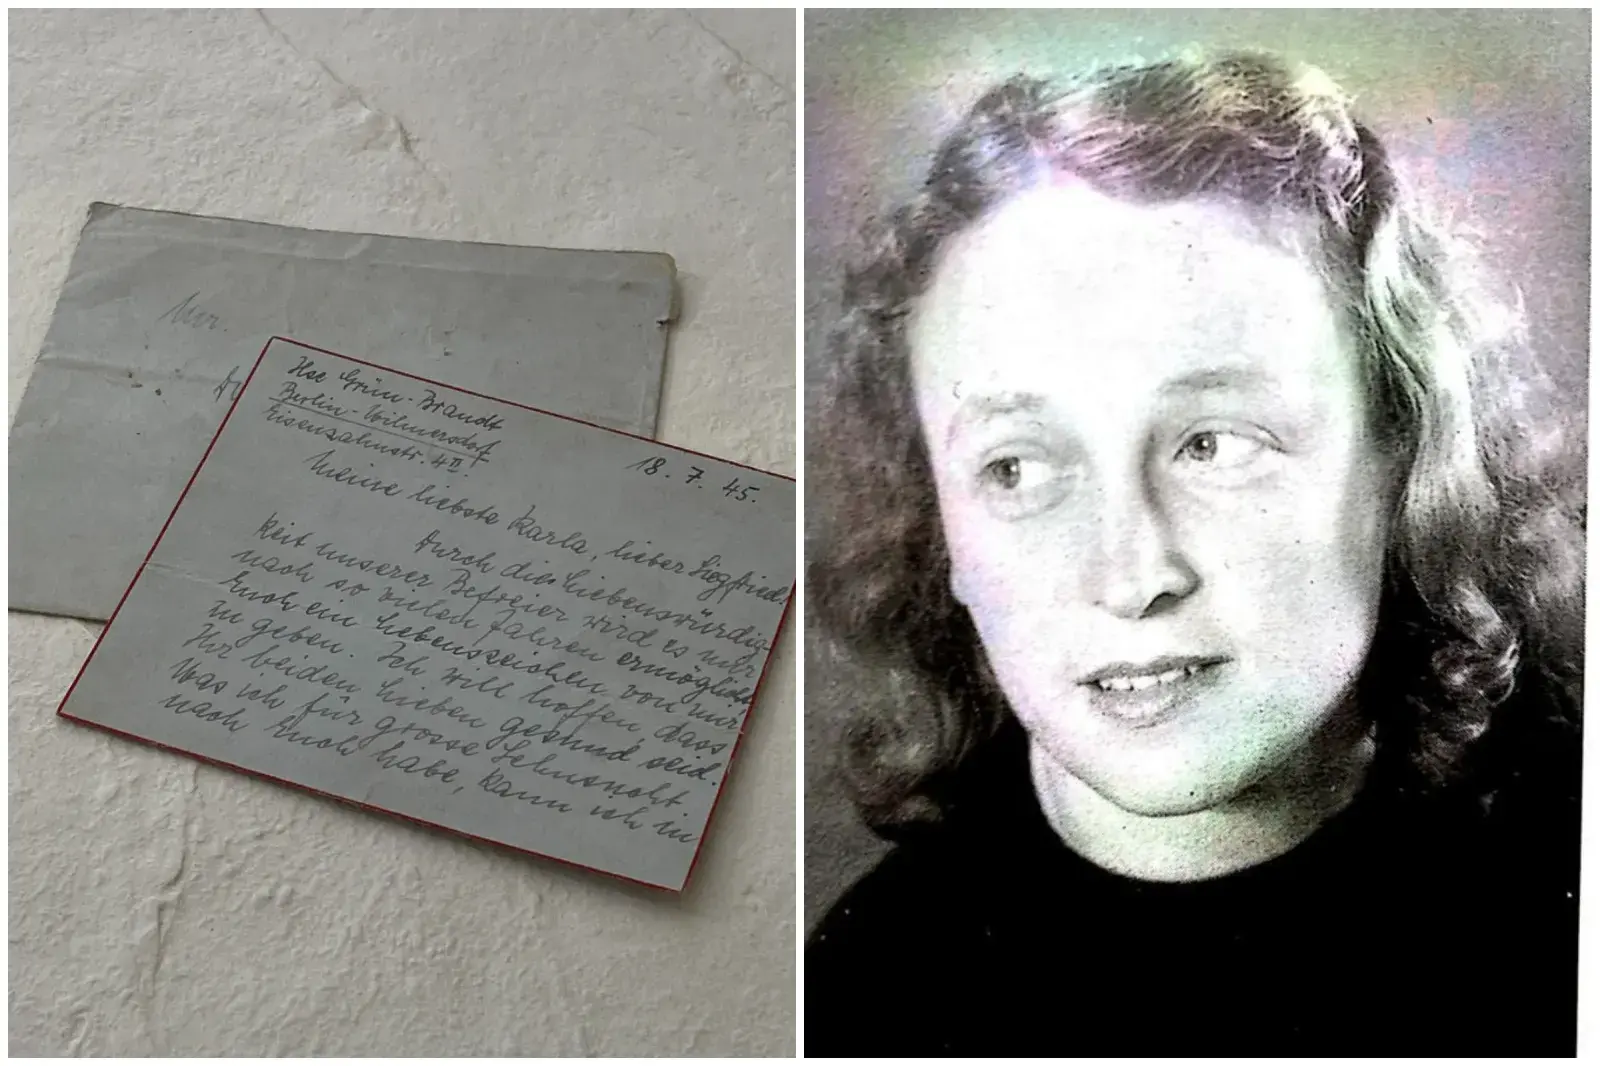 Mr.
Ilse Grün-Brandt
Berlin-Wilmersdorf
Eisenzahnstr. 4 II
18. 7. 45.
Meine liebste Karla, lieber Siegfried!
Durch die Liebenswürdig-
keit unserer Befreier wird es mir
nach so vielen Jahren ermöglicht
Euch ein Lebenszeichen von mir
zu geben. Ich will hoffen, dass
Ihr beiden Lieben gesund seid.
Was ich für grosse Sehnsucht
nach Euch habe, kann ich in